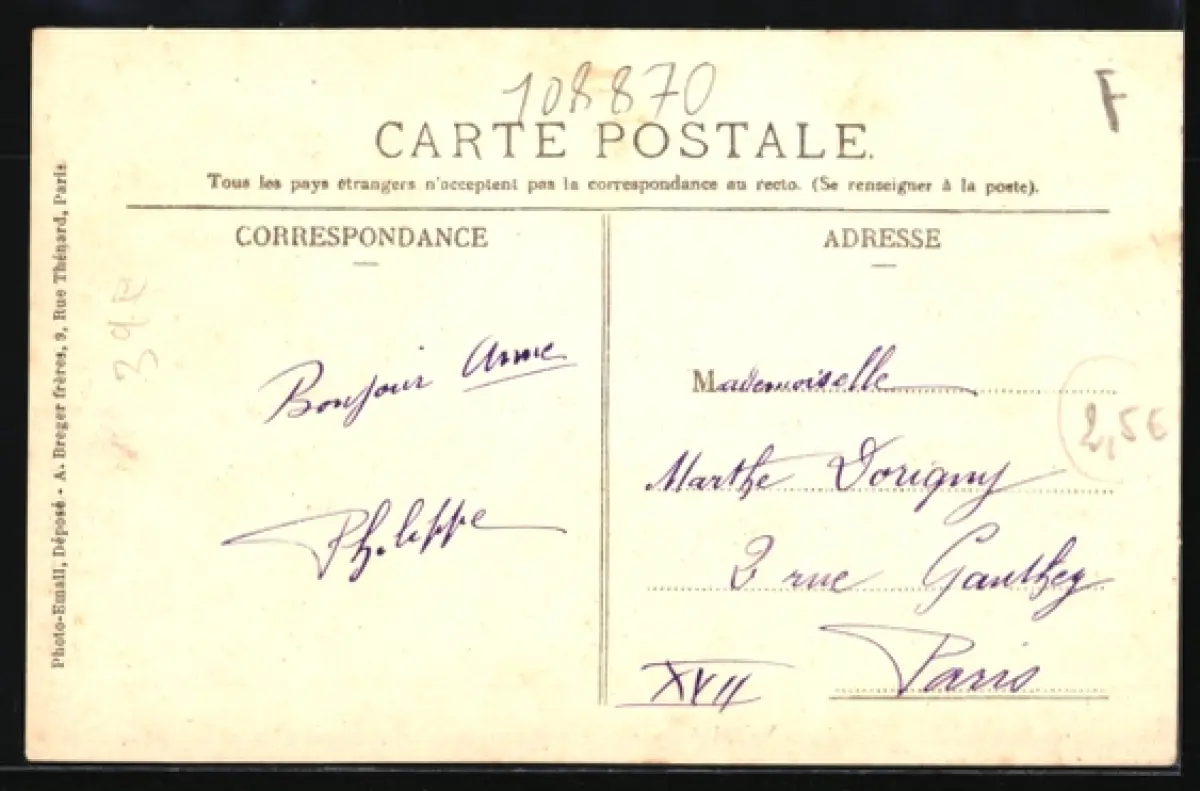 108870
F
CARTE POSTALE.
Tous les pays étrangers n'acceptent pas la correspondance au recto. (Se renseigner à la poste).
CORRESPONDANCE
Bonjour Anne
Philippe
ADRESSE
Mademoiselle
Marthe Dorigny
2 rue Gauthey
Paris
XVII
2,5€
Photo-Email, Déposé - A. Breger frères, 9, Rue Thénard, Paris